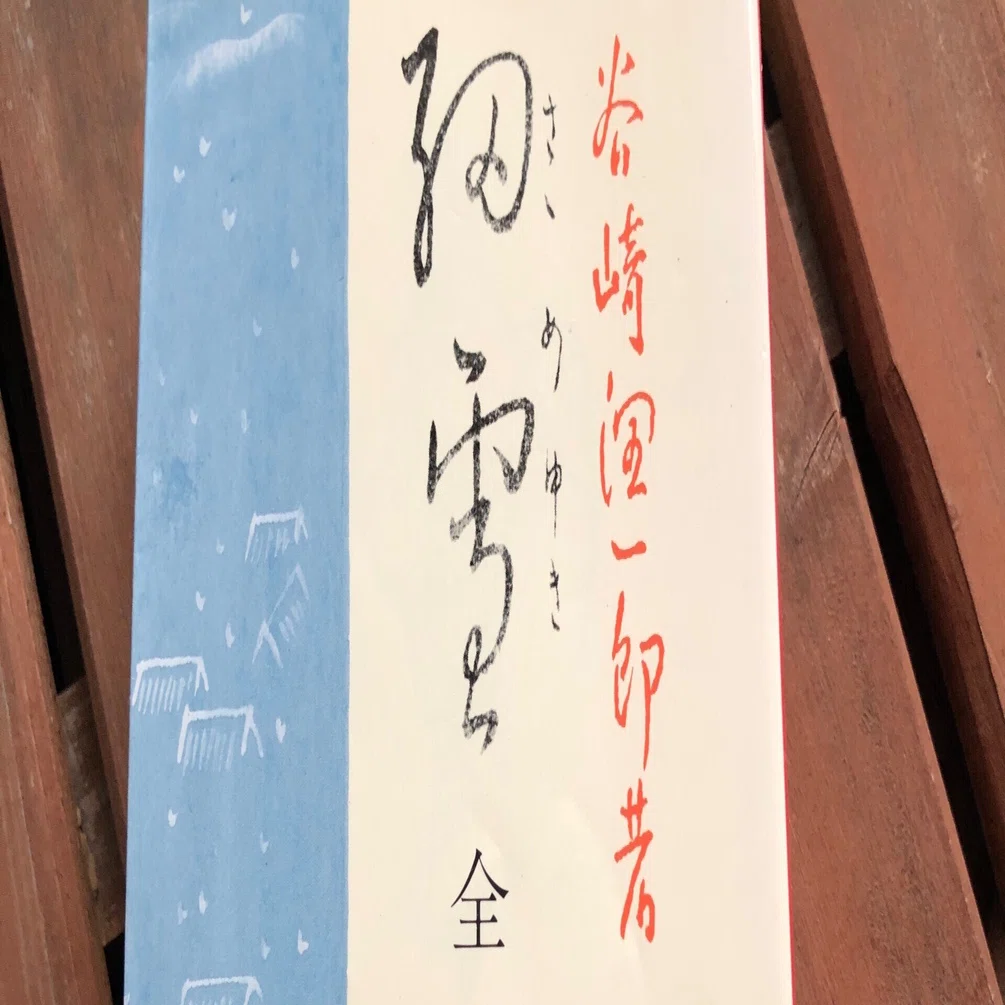 谷崎潤一郎著
さゝめゆき
細雪
全